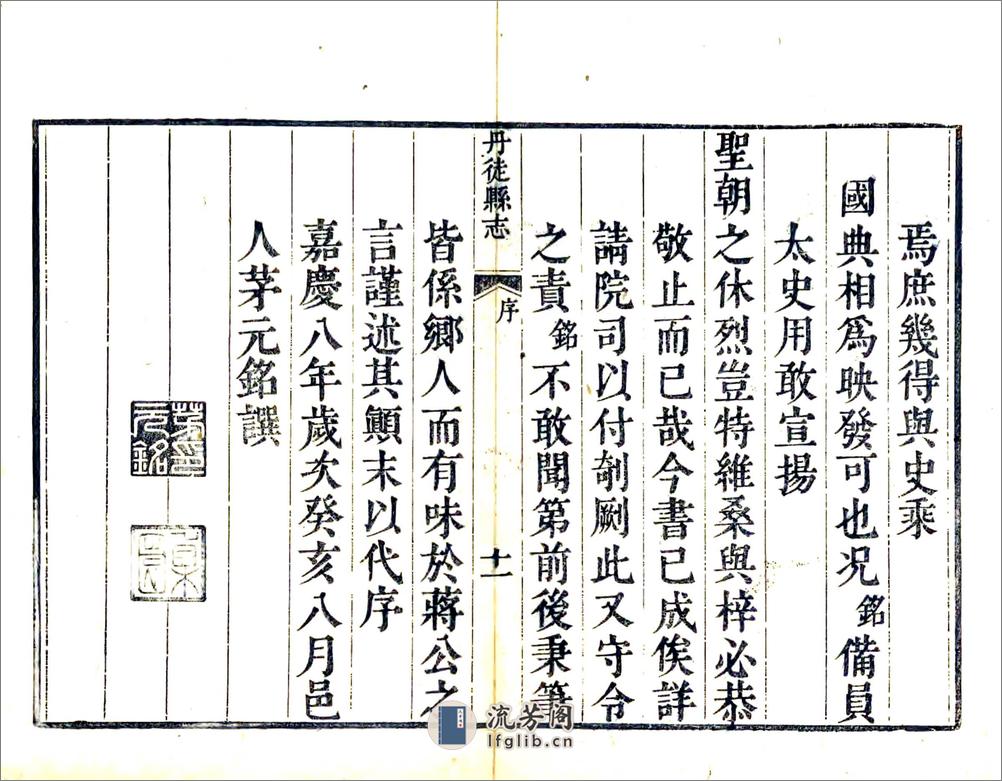 焉庶幾得與史乘
國典相爲映發可也況銘備員
太史用敢宣揚
聖朝之休烈豈特維桑與梓必恭
敬止而已哉今書已成俟詳
請院司以付剞劂此又守令
之責銘不敢聞第前後秉筆
丹徒縣志
序
十一
皆係鄉人而有味於蔣公之
言謹述其顚末以代序
嘉慶八年歲次癸亥八月邑
人茅元銘譔
茅印
元銘
流芳阁
lfglib.cn